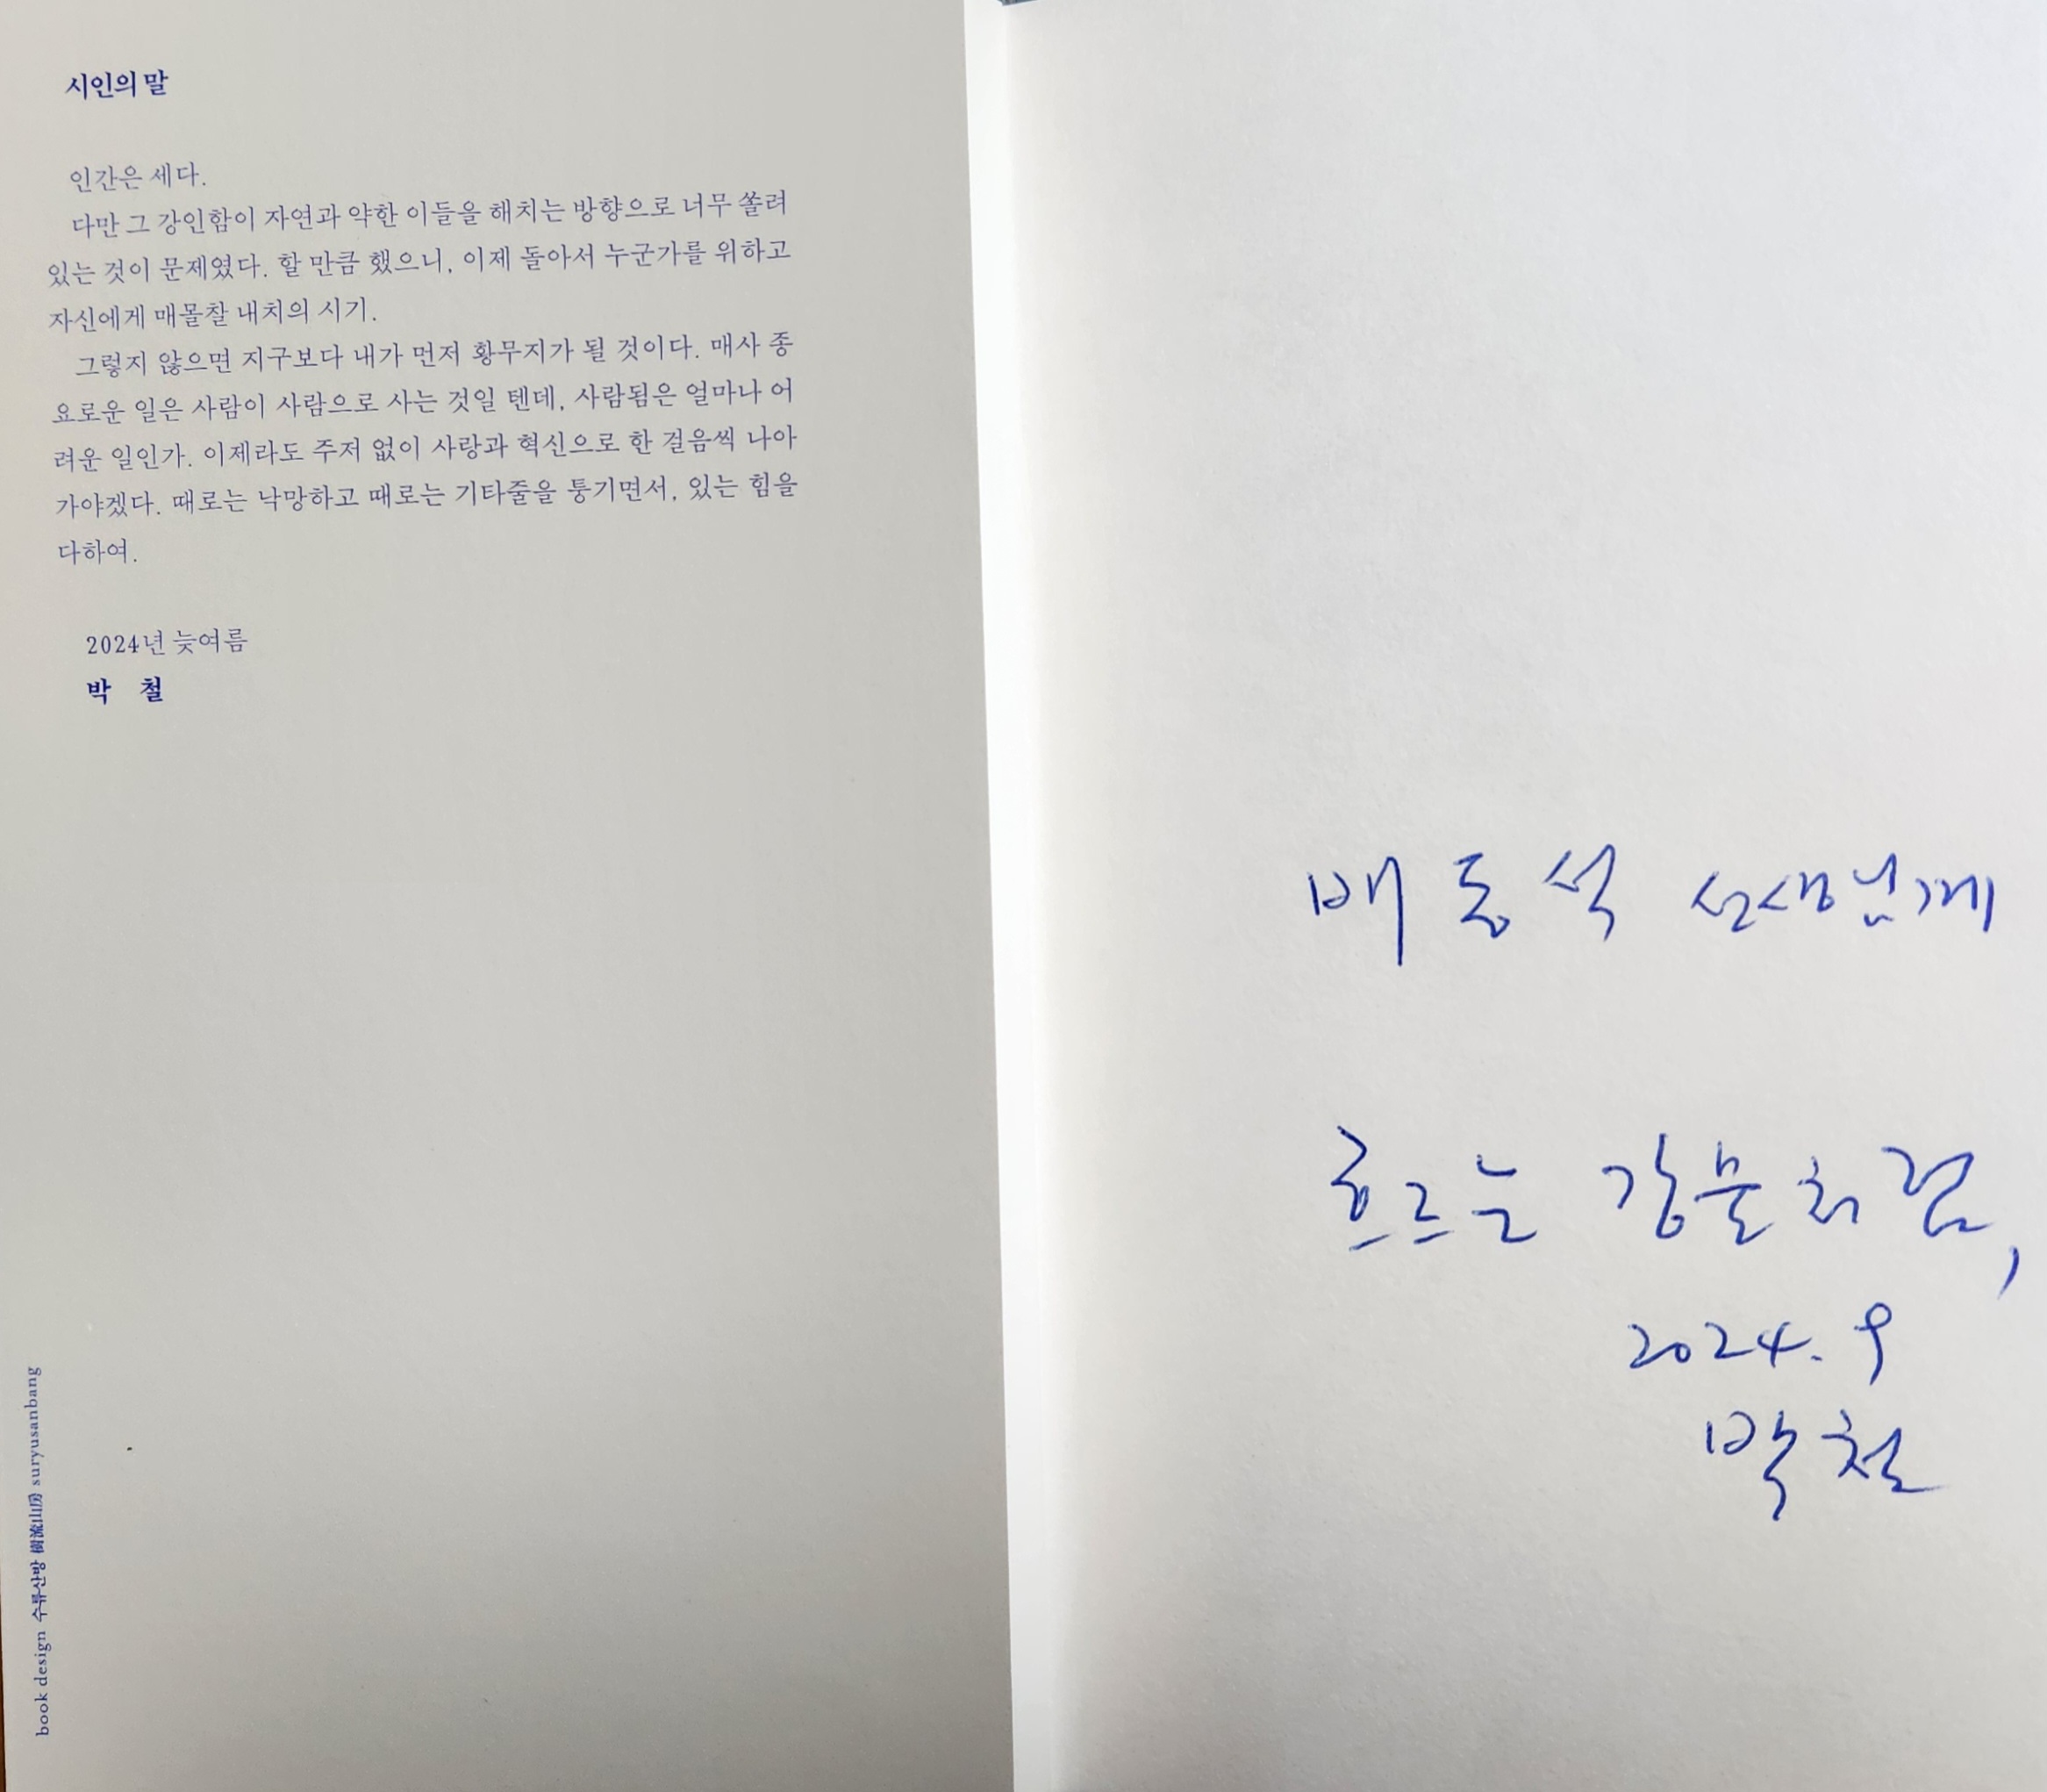 시인의 말
인간은 세다.
다만 그 강인함이 자연과 약한 이들을 해치는 방향으로 너무 쏠려
있는 것이 문제였다. 할 만큼 했으니, 이제 돌아서 누군가를 위하고
자신에게 매몰찰 내치의 시기.
그렇지 않으면 지구보다 내가 먼저 황무지가 될 것이다. 매사 종
요로운 일은 사람이 사람으로 사는 것일 텐데, 사람됨은 얼마나 어
려운 일인가. 이제라도 주저 없이 사랑과 혁신으로 한 걸음씩 나아
가야겠다. 때로는 낙망하고 때로는 기타줄을 퉁기면서, 있는 힘을
다하여.
2024년 늦여름
박 철
book design 수류산방 樹流山房 suryusanbang
배동석 선생님께
흐르는 강물처럼,
2024. 9
박철